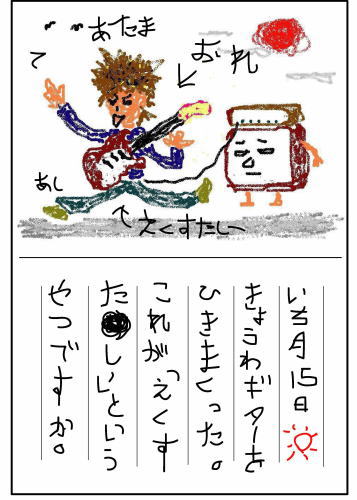 あたま
て
おれ
あし
えくすたしー
いち月15日
きょうわギターを
ひきまくった。
これがえくす
たしいという
やつですか。